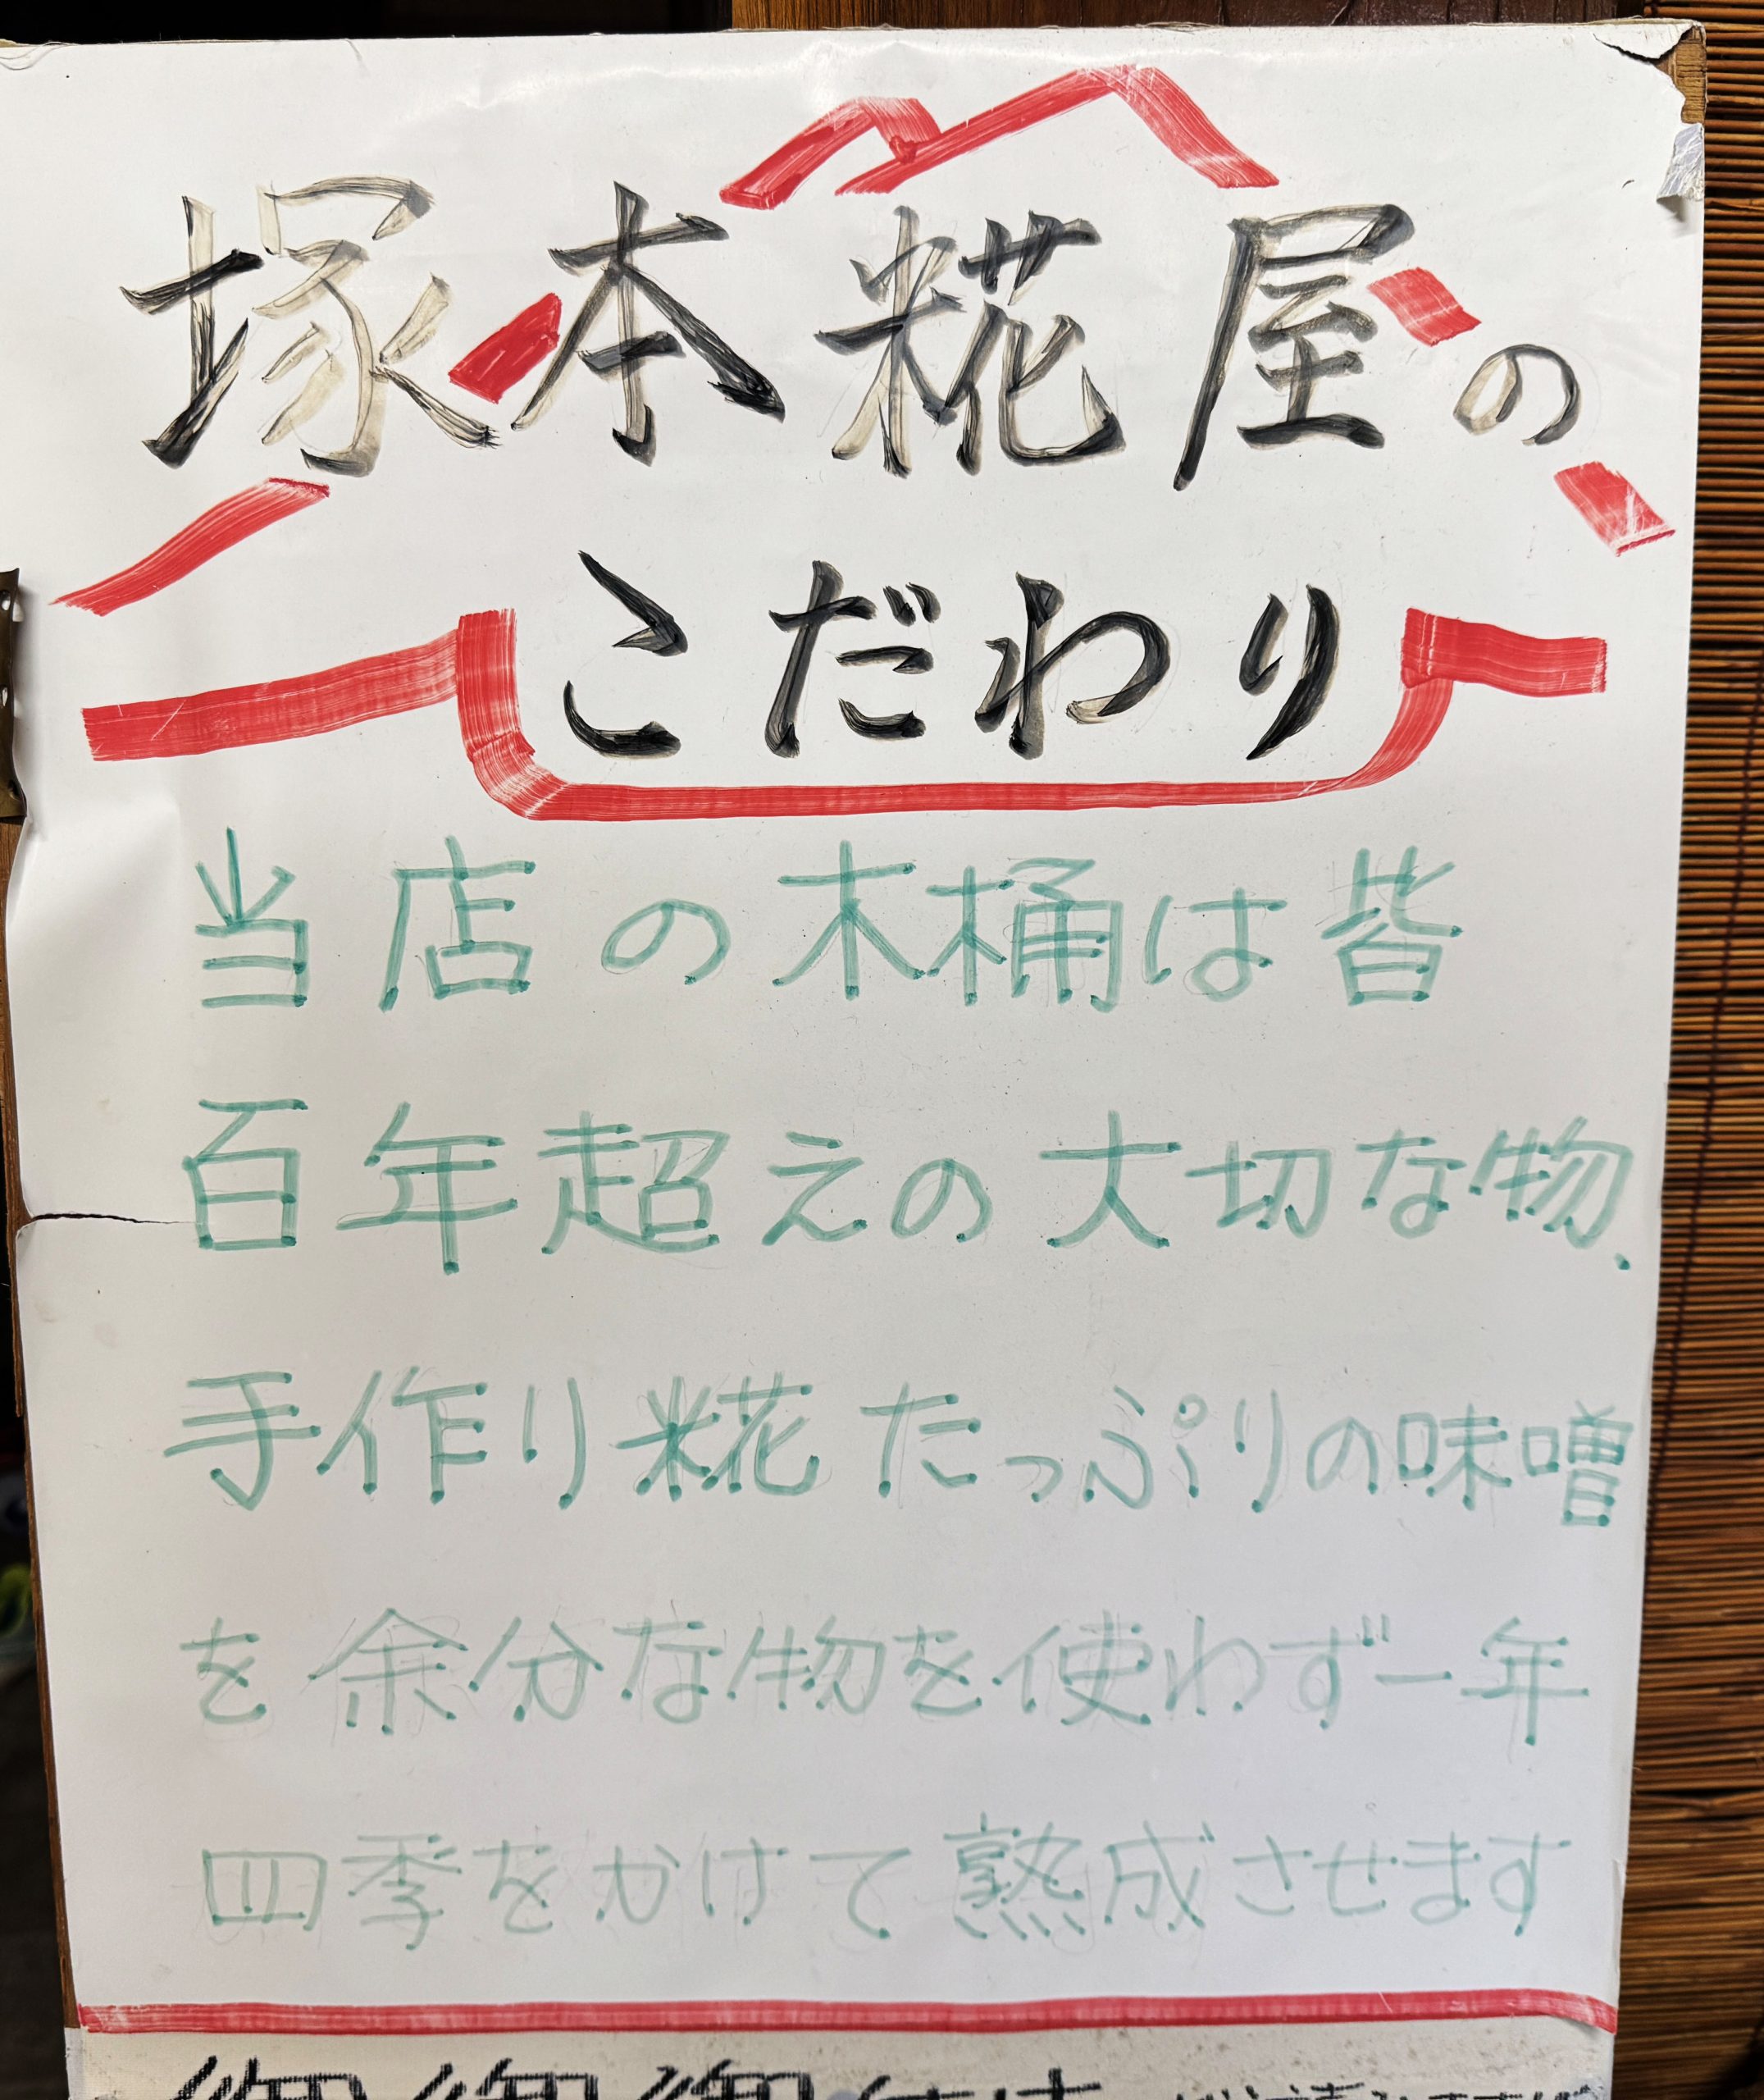 塚本糀屋の
こだわり
当店の木桶は皆
百年超えの大切な物、
手作り糀たっぷりの味噌
を余分な物を使わず一年
四季をかけて熟成させます